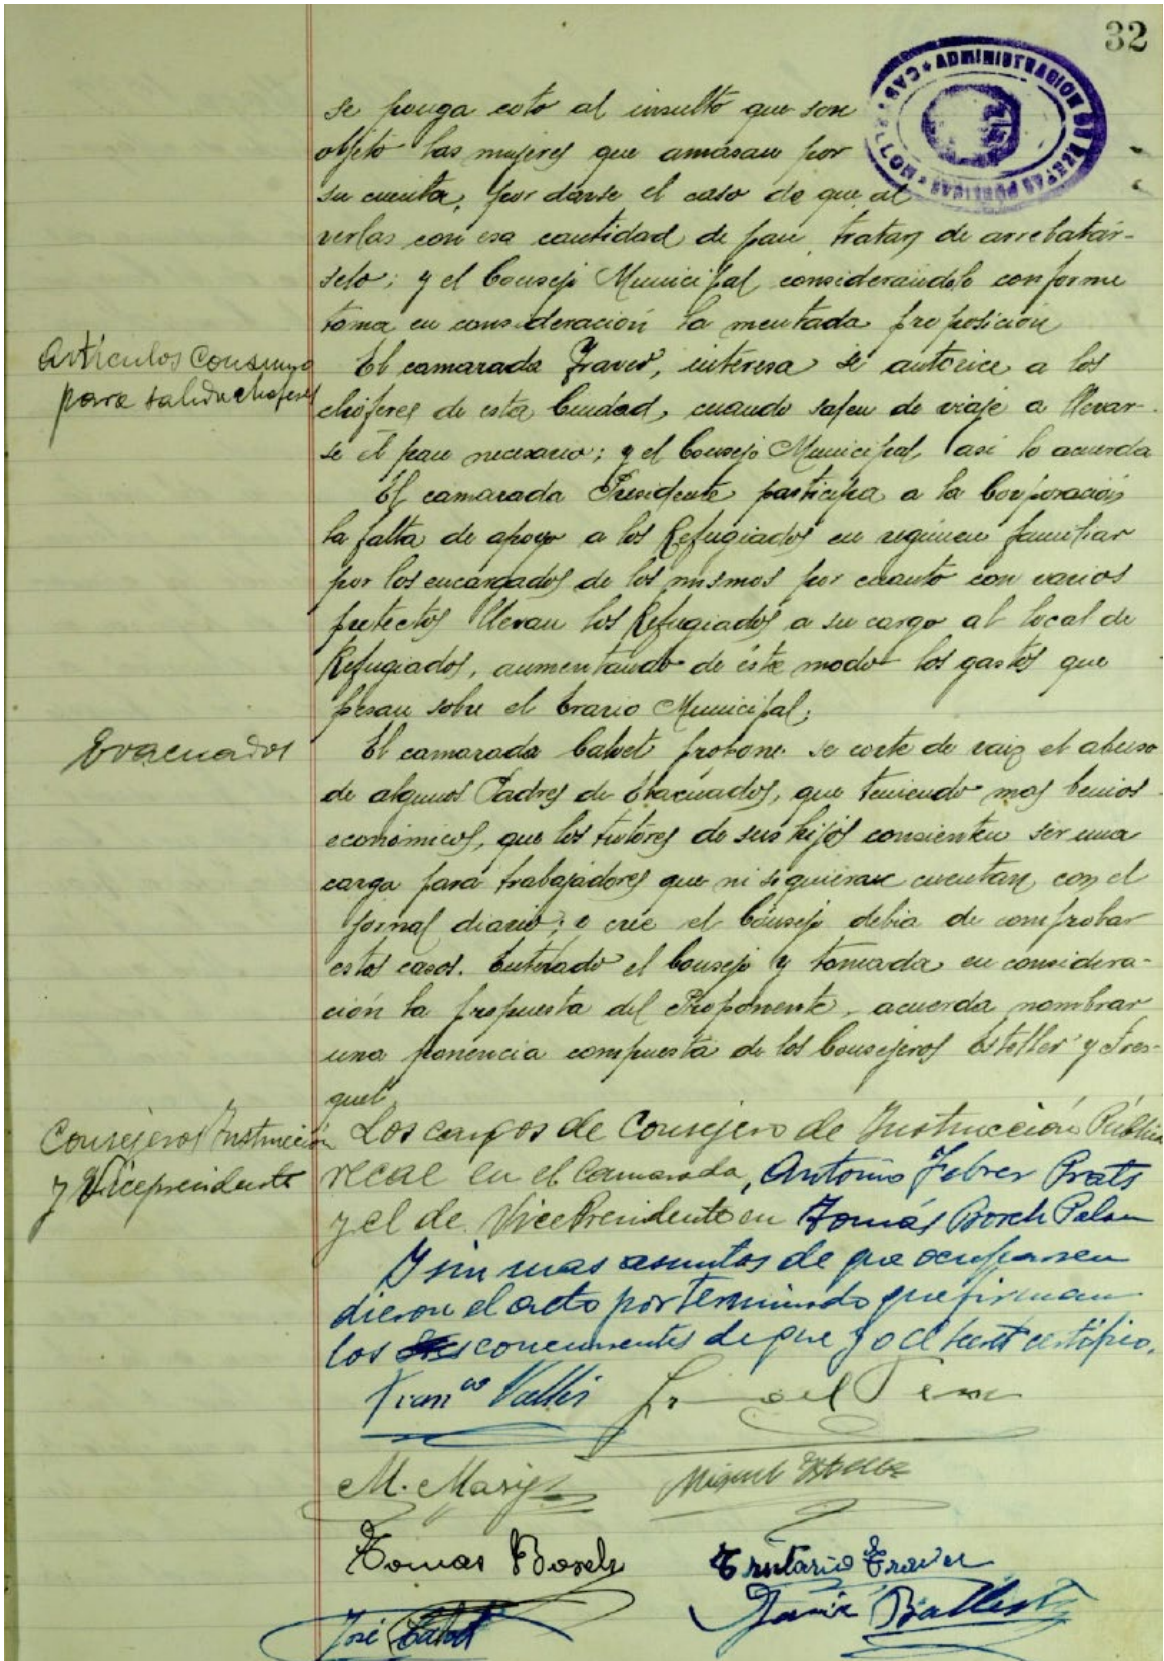 32
ADMINISTRACION DE RENTAS PÚBLICAS
se ponga coto al insulto que son
objeto las mujeres que amasan por
su cuenta, por darse el caso de que al
verlas con esa cantidad de pan, tratan de arrebatár-
selo; y el Consejo Municipal considerándolo conforme
toma en consideración la mentada proposición
Artículos Consumo
para salida choferes
El camarada Traver, interesa se autorice a los
chóferes de esta Ciudad, cuando salen de viaje a llevar-
se el pan necesario; y el Consejo Municipal, así lo acuerda
El camarada Presidente participa a la Corporación
la falta de apoyo a los Refugiados en régimen familiar
por los encargados de los mismos por cuanto con varios
pretectos llevan los Refugiados a su cargo al local de
Refugiados, aumentando de éste modo los gastos que
pesan sobre el Erario Municipal.
Evacuados
El camarada Calvet propone se corte de raiz el abuso
de algunos Padres de Evacuados, que teniendo mas
económicos, que los tutores de sus hijos consienten ser una
carga para trabajadores que ni siquiera cuentan con el
jornal diario; e crée el Consejo debia de comprobar
estos casos. Enterado el Consejo y tomada en considera-
ción la propuesta del Proponente, acuerda nombrar
una ponencia compuesta de los Consejeros Esteller y Fres-
quet
Consejeros Instrucción
y Vicepresidente
Los cargos de Consejero de Instrucción Pública
recae en el Camarada, Antonio Febrer Prats
y el de VicePresidente en Tomás Bosch Palau
Y sin mas asuntos de que ocuparse
dieron el acto por terminado que firman
los concurrentes de que yo el Secret certifico.
Fran^co Vallés
M. Masip
Miguel Esteller
Tomas Bosch
Trinitario Traver
José Calvet
Ballester